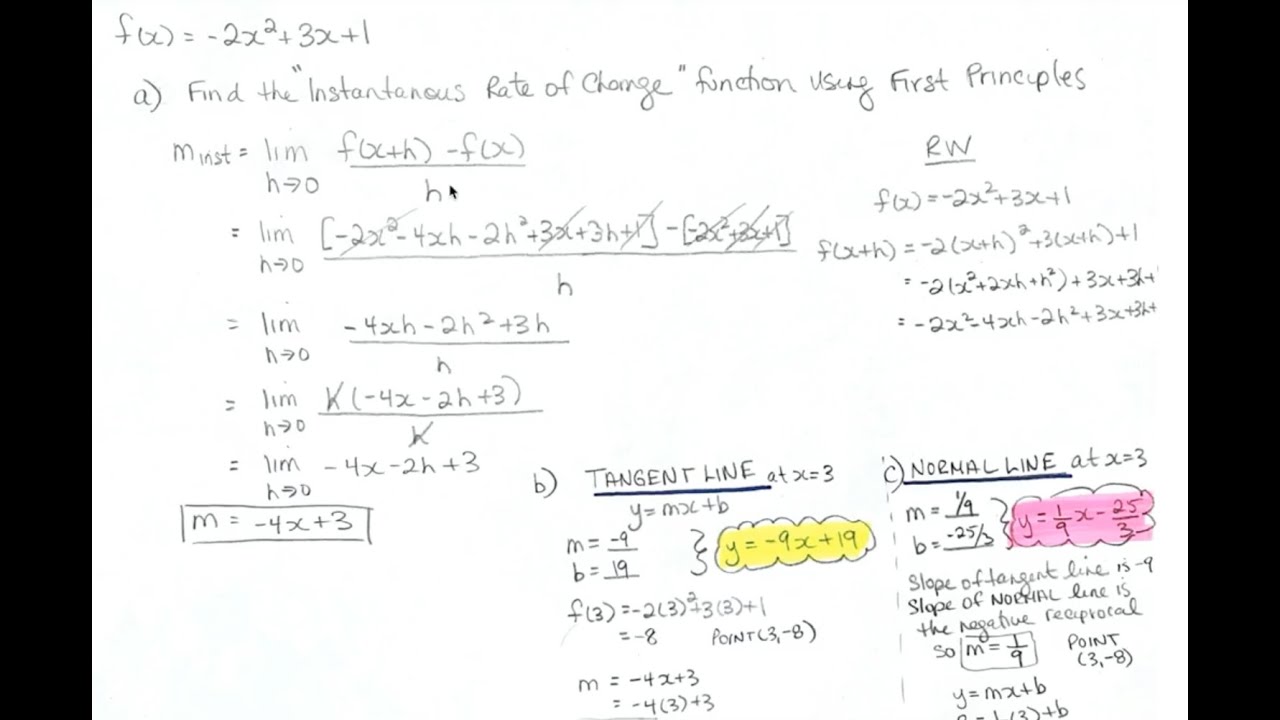 f(x) = -2x²+3x+1
a) Find the "Instantanous Rate of Change" function using First Principles
m inst = lim h→0 f(x+h) - f(x) / h
= lim h→0 [-2x²-4xh-2h²+3x+3h+1] - [-2x²+3x+1] / h
= lim h→0 -4xh-2h²+3h / h
= lim h→0 h(-4x-2h+3) / h
= lim h→0 -4x-2h+3
m = -4x+3
RW
f(x) = -2x²+3x+1
f(x+h) = -2(x+h)²+3(x+h)+1
= -2(x²+2xh+h²)+3x+3h+
= -2x²-4xh-2h²+3x+3h+
b) TANGENT LINE at x=3
y=mx+b
m = -9
b = 19
y = -9x+19
f(3) = -2(3)²+3(3)+1
= -8 POINT (3,-8)
m = -4x+3
= -4(3)+3
c) NORMAL LINE at x=3
m = 1/9
b = -25/3
y = 1/9 x - 25/3
Slope of tangent line is -9
Slope of NORMAL line is
the negative reciprocal
so m = 1/9 POINT (3,-8)
y = mx+b